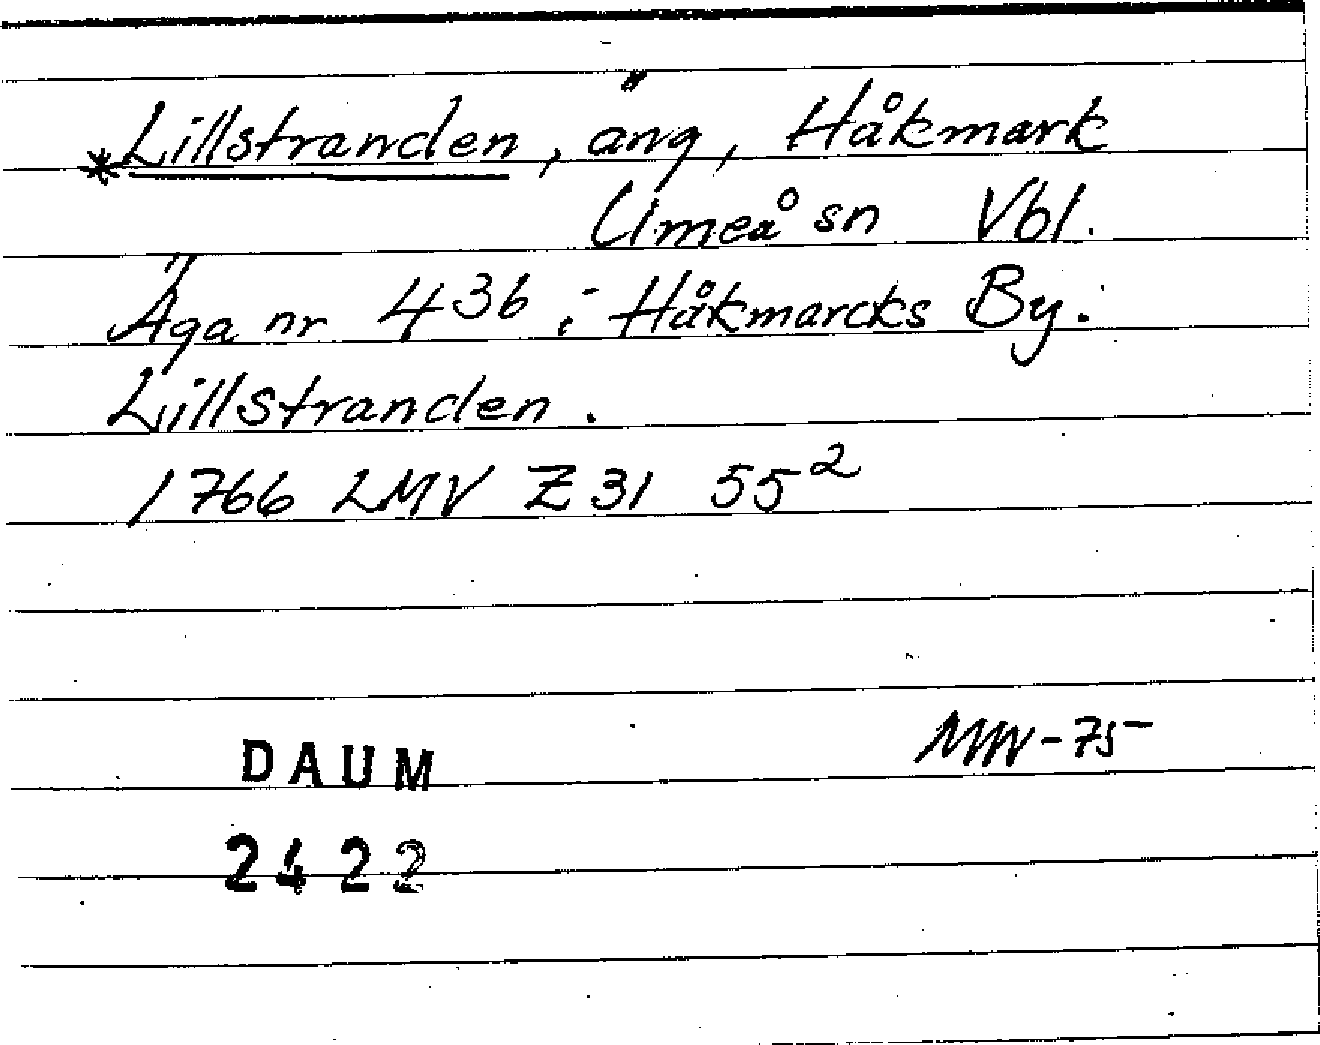 *Lillstranden, äng, Håkmark
Umeå sn Vbl.
Äga nr 436 i Håkmarcks By:
Lillstranden.
1766 LMV Z31 55²
MW-75
DAUM
2422